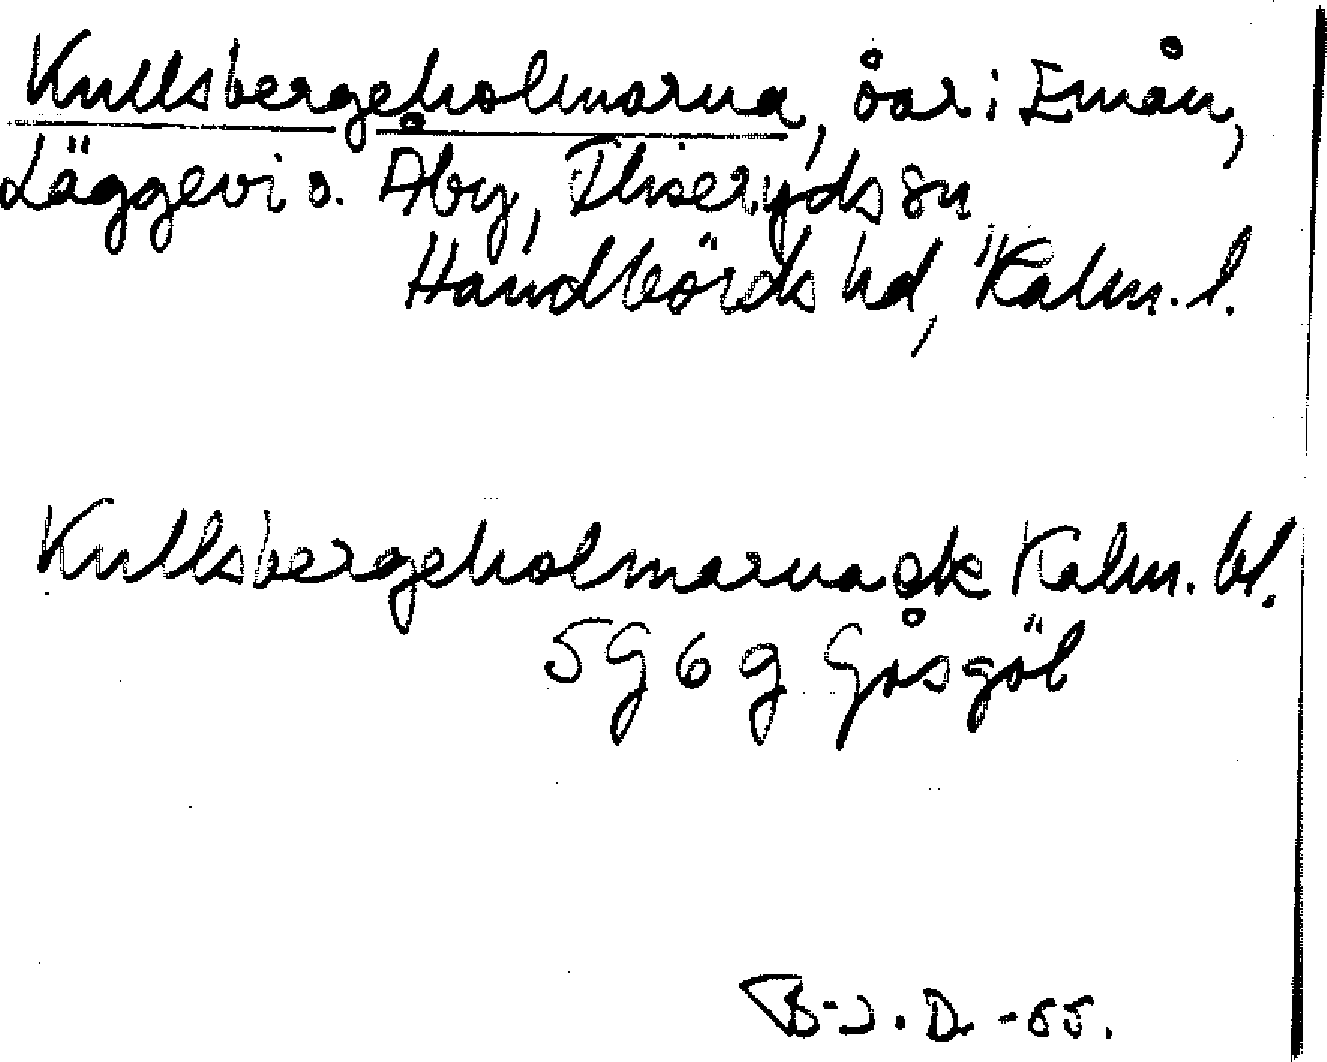 Kullsbergeholmarna, öar i Emån,
Läggevi o. Åby, Fliseryds sn
Handbörds hd, Kalm. l.
Kullsbergeholmarna ek Kalm. bl.
5G6g Gåsgöl
B-J. D. -65.